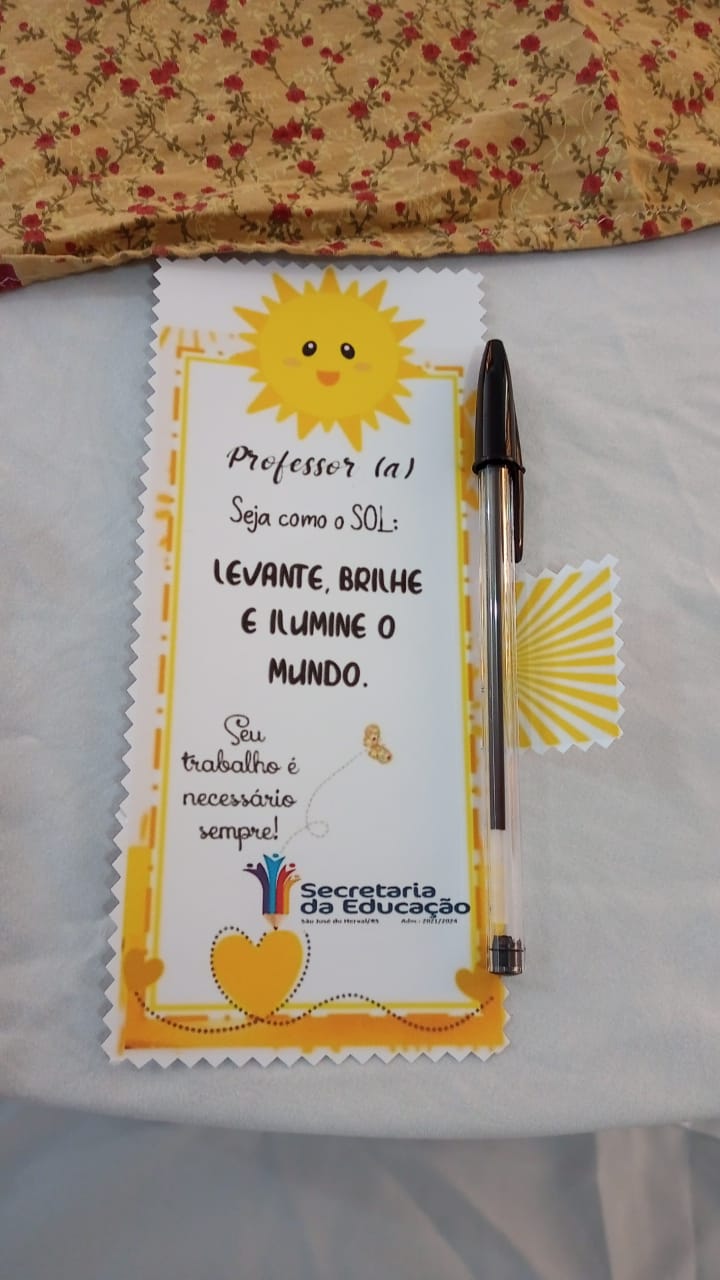 Professor (a)
Seja como o SOL:
LEVANTE, BRILHE
E ILUMINE O
MUNDO.
Seu
trabalho é
necessário
sempre!
Secretaria
da Educação
São José do Herval/RS Adm - 2021/2024